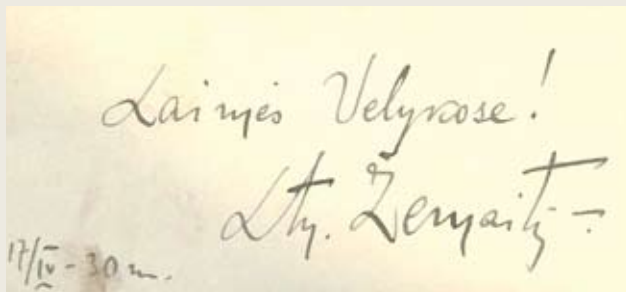 Laimės Velykose!
Žemaitį
17/IV-30 m.